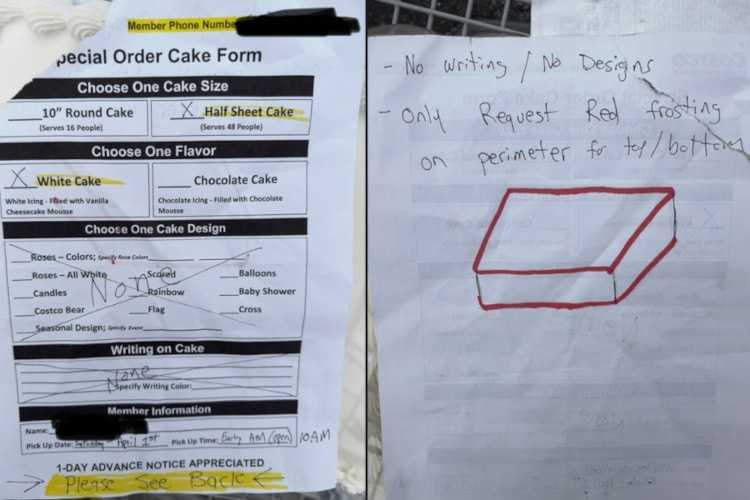 Member Phone Numbe
pecial Order Cake Form
Choose One Cake Size
___10" Round Cake
(Serves 16 People)
X Half Sheet Cake
(Serves 48 People)
Choose One Flavor
X White Cake
White Icing - Filled with Vanilla
Cheesecake Mousse
___ Chocolate Cake
Chocolate Icing - Filled with Chocolate
Mousse
Choose One Cake Design
___Roses – Colors; Specify Rose Colors
___Roses – All White
___Scared
___Balloons
None
___Candles
___Rainbow
___Baby Shower
___Costco Bear
___Flag
___Cross
___Seasonal Design; Specify Event
Writing on Cake
None
Specify Writing Color:
Member Information
Name:
Pick Up Date: Saturday - April 1st Pick Up Time: Early AM (open) 10AM
1-DAY ADVANCE NOTICE APPRECIATED
→ Please See Back ←
- No writing / No Designs
- Only Request Red frosting
on perimeter for top/bottom